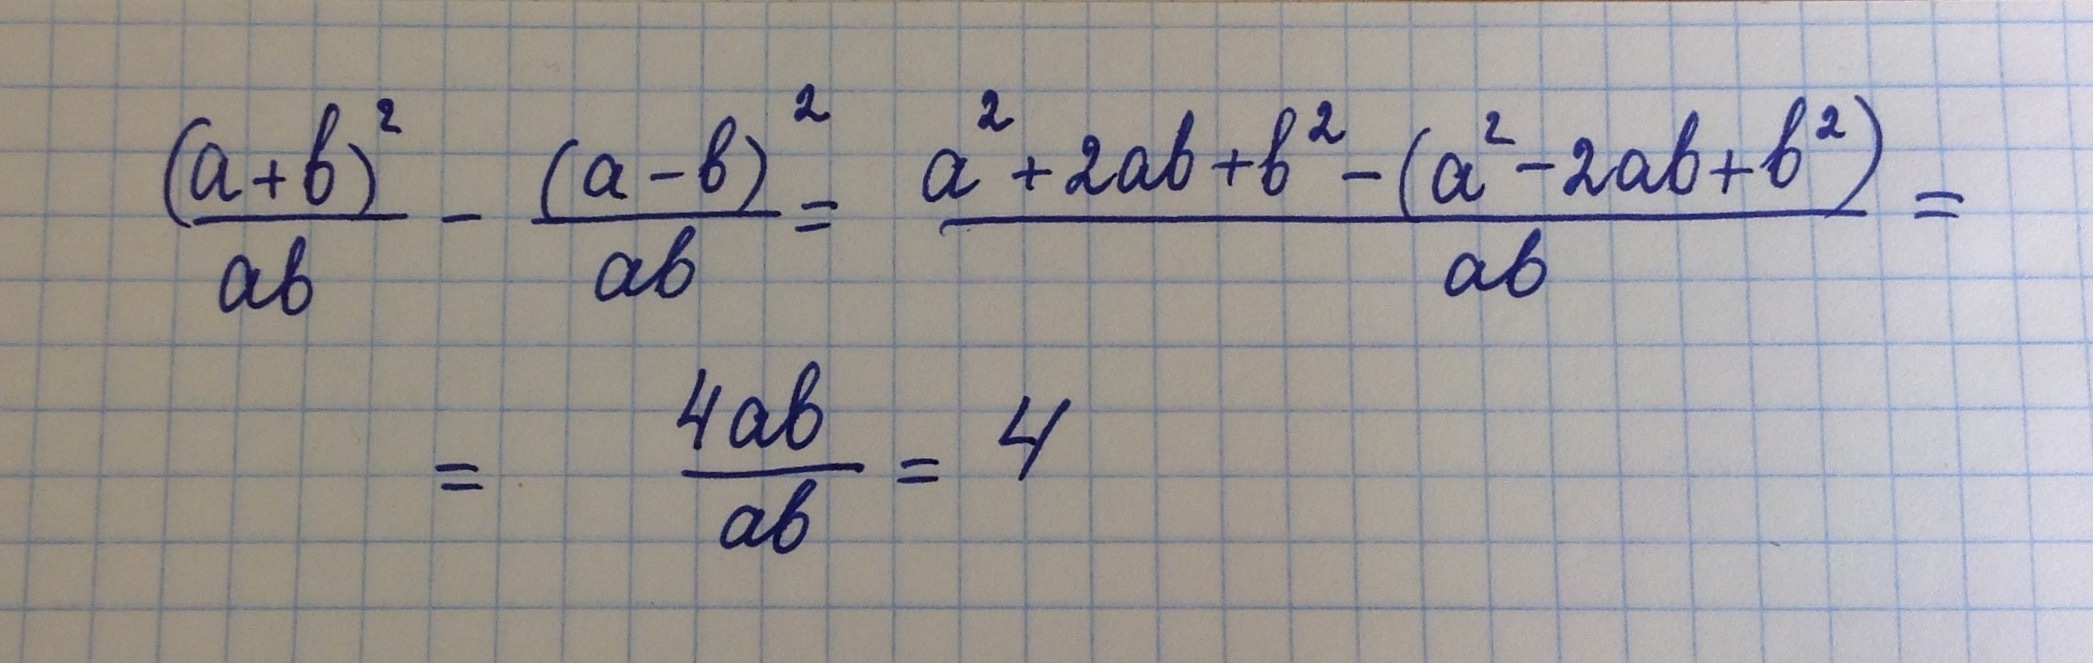 (a+b)²/ab - (a-b)²/ab = a²+2ab+b²-(a²-2ab+b²)/ab =
= 4ab/ab = 4